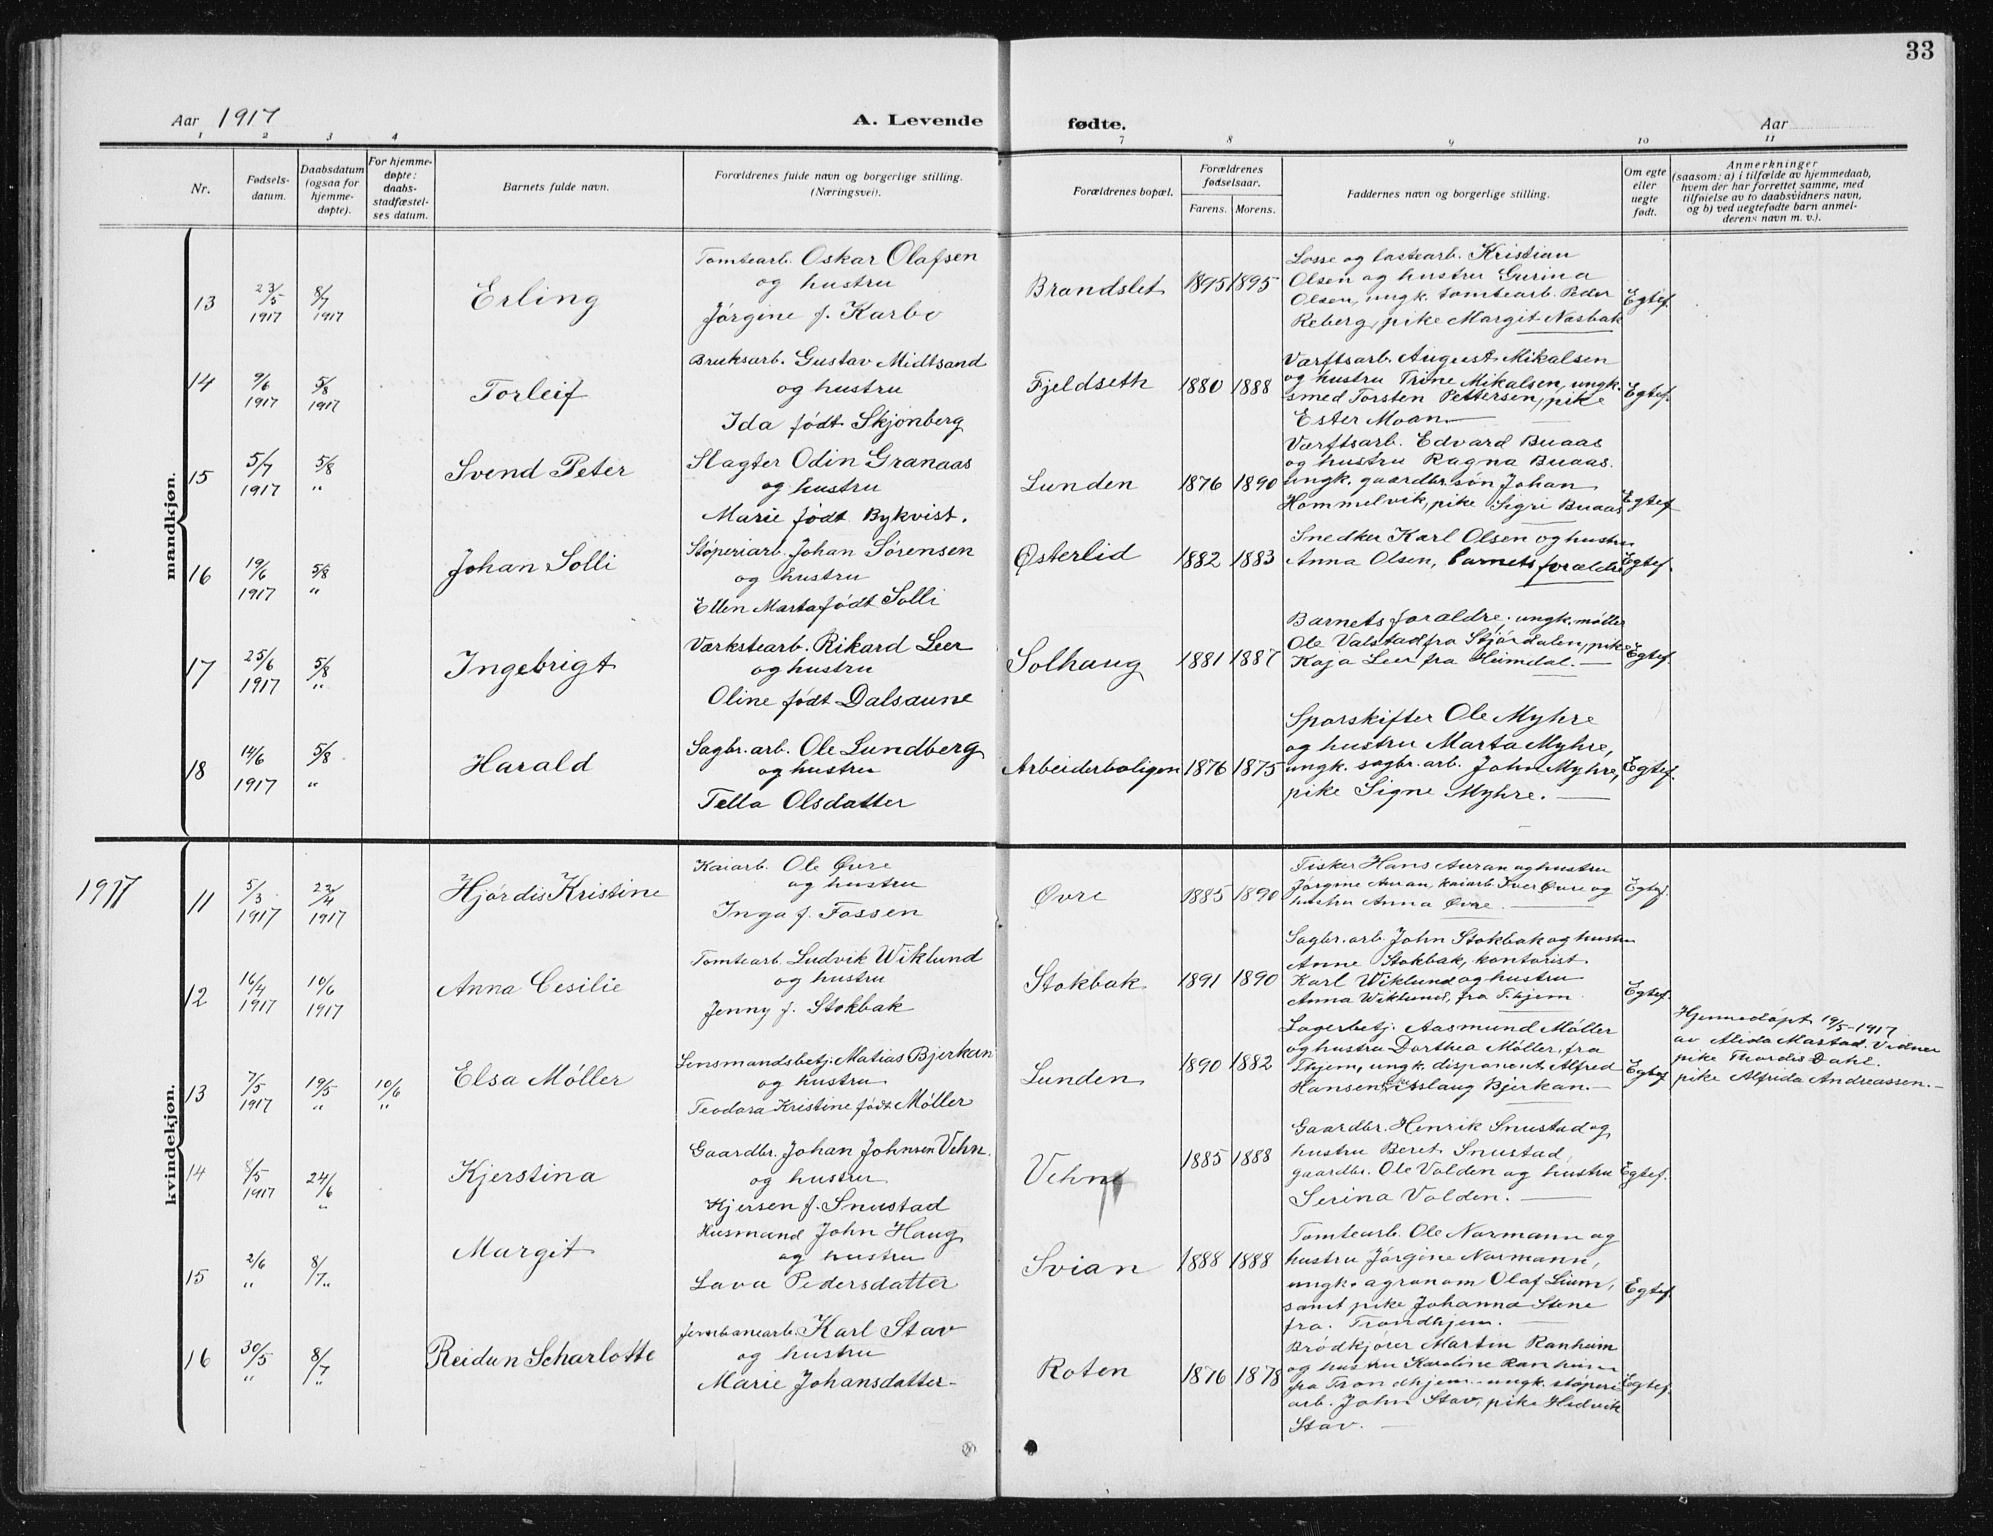 33
Aar 1917
A. Levende
fødte.
Aar
1 2 3 4 7 8 9 10 11
Nr.
Fødsels-
datum.
Daabsdatum
(ogsaa for
hjemme-
døpte).
For hjemme-
døpte:
daabs-
stadfæstel-
ses datum.
Barnets fulde navn.
Forældrenes fulde navn og borgerlige stilling.
(Næringsvei).
Forældrenes bopæl.
Forældrenes
fødselsaar.
Farens. Morens.
Faddernes navn og borgerlige stilling.
Om egte
eller
uegte
født.
Anmerkninger
(saasom: a) i tilfælde av hjemmedaab,
hvem der har forrettet samme, med
tilføielse av to daabsvidners navn,
og b) ved uegtefødte barn anmel-
derens navn m. v.).
mandkjøn.
13
23/5
1917
8/7
1917
Erling
Tomtearb. Oskar Olafsen
og hustru
Jørgine f. Karbo
Brandslet
1895 1895
Losse og lastearb. Kristian
Olsen og hustru Gurina
Olsen, ungk. tomtearb. Peder
Reberg, pike Margit Nasbak
Egtef.
14
9/6
1917
5/8
1917
Torleif
Bruksarb. Gustav Midtsand
og hustru
Ida født Skjønberg
Fjeldseth
1880 1888
Værftsarb. August Mikalsen
og hustru Trine Mikalsen, ungk.
smed Torsten Pettersen, pike
Ester Moan
Egtef.
15
5/7
1917
5/8
"
Svend Peter
Slagter Odin Granaas
og hustru
Marie født Bykvist.
Lunden
1876 1890
Værftsarb. Edvard Buaas
og hustru Ragna Buaas.
ungk. gaardbr. søn Johan
Hommelvik, pike Sigri Buaas
Egtef
16
19/6
1917
5/8
"
Johan Solli
Støperiarb. Johan Sørensen
og hustru
Ellen Marta født Solli
Østerlid
1882 1883
Snedker Karl Olsen og hustru
Anna Olsen, barnets forældre
Egtef.
17
25/6
1917
5/8
"
Ingebrigt
Værkstearb. Rikard Leer
og hustru
Oline født Dalsaune
Solhaug
1881 1887
Barnets forældre; ungk. møller
Ole Valstad fra Stjørdalen, pike
Kaja Leer fra Heimdal.
Egtef.
18
14/6
1917
5/8
"
Harald
Sagbr. arb. Ole Lundberg
og hustru
Tella Olsdatter
Arbeiderboligen
1876 1875
Sporskifter Ole Myhre
og hustru Marta Myhre,
ungk. sagbr. arb. John Myhre,
pike Signe Myhre.
Egtef.
1917
kvindekjøn.
11
5/3
1917
23/4
1917
Hjørdis Kristine
Kaiarb. Ole Øvre
og hustru
Inga f. Fossen
Øvre
1885 1890
Fisker Hans Auran og hustru
Jørgine Auran, kaiarb. Iver Øvre og
hustru Anna Øvre.
Egtef.
12
16/4
1917
10/6
1917
Anna Cesilie
Tomtearb. Ludvik Wiklund
og hustru
Jenny f. Stokbak
Stokbak
1891 1890
Sagbr. arb. John Stokbak og hustru
Anne Stokbak, kontorist
Karl Wiklund og hustru
Anna Wiklund, fra Thjem.
Egtef.
13
7/5
1917
19/5
"
10/6
"
Elsa Møller
Lensmandsbetj. Matias Bjerkan
og hustru
Teodora Kristine født Møller
Lunden
1890 1882
Lagerbetj. Aasmund Møller
og hustru Dorthea Møller, fra
Thjem, ungk. disponent Alfred
Hansen, Aslaug Bjerkan.
Egtef
Hjemmedøpt 19/5-1917
av Alida Mastad. Vidner
pike Thordis Dahl.
pike Alfrida Andreassen.
14
8/5
1917
24/6
"
Kjerstina
Gaardbr. Johan Johnsen Vehn.
og hustru
Kjersen f. Snustad
Vehne
1885 1888
Gaardbr. Henrik Snustad og
hustru Beret Snustad,
gaardbr. Ole Volden og hustru
Serina Volden.
Egtef.
15
2/6
"
8/7
"
Margit
Husmand John Haug
og hustru
Lava Pedersdatter
Svian
1888 1888
Tomtearb. Ole Normann og
hustru Jørgine Normann,
ungk. agronom Olaf Lium,
samt pike Johanna Stene
fra. Trondhjem.
Egtef.
16
30/5
"
8/7
"
Reidun Scharlotte
Jernbanearb. Karl Stav
og hustru
Marie Johansdatter
Roten
1876 1878
Brødkjører Martin Ranheim
og hustru Karoline Ranheim
fra Trondhjem - ungk. støperi
arb. John Stav, pike Hedvik
Stav.
Egtef.